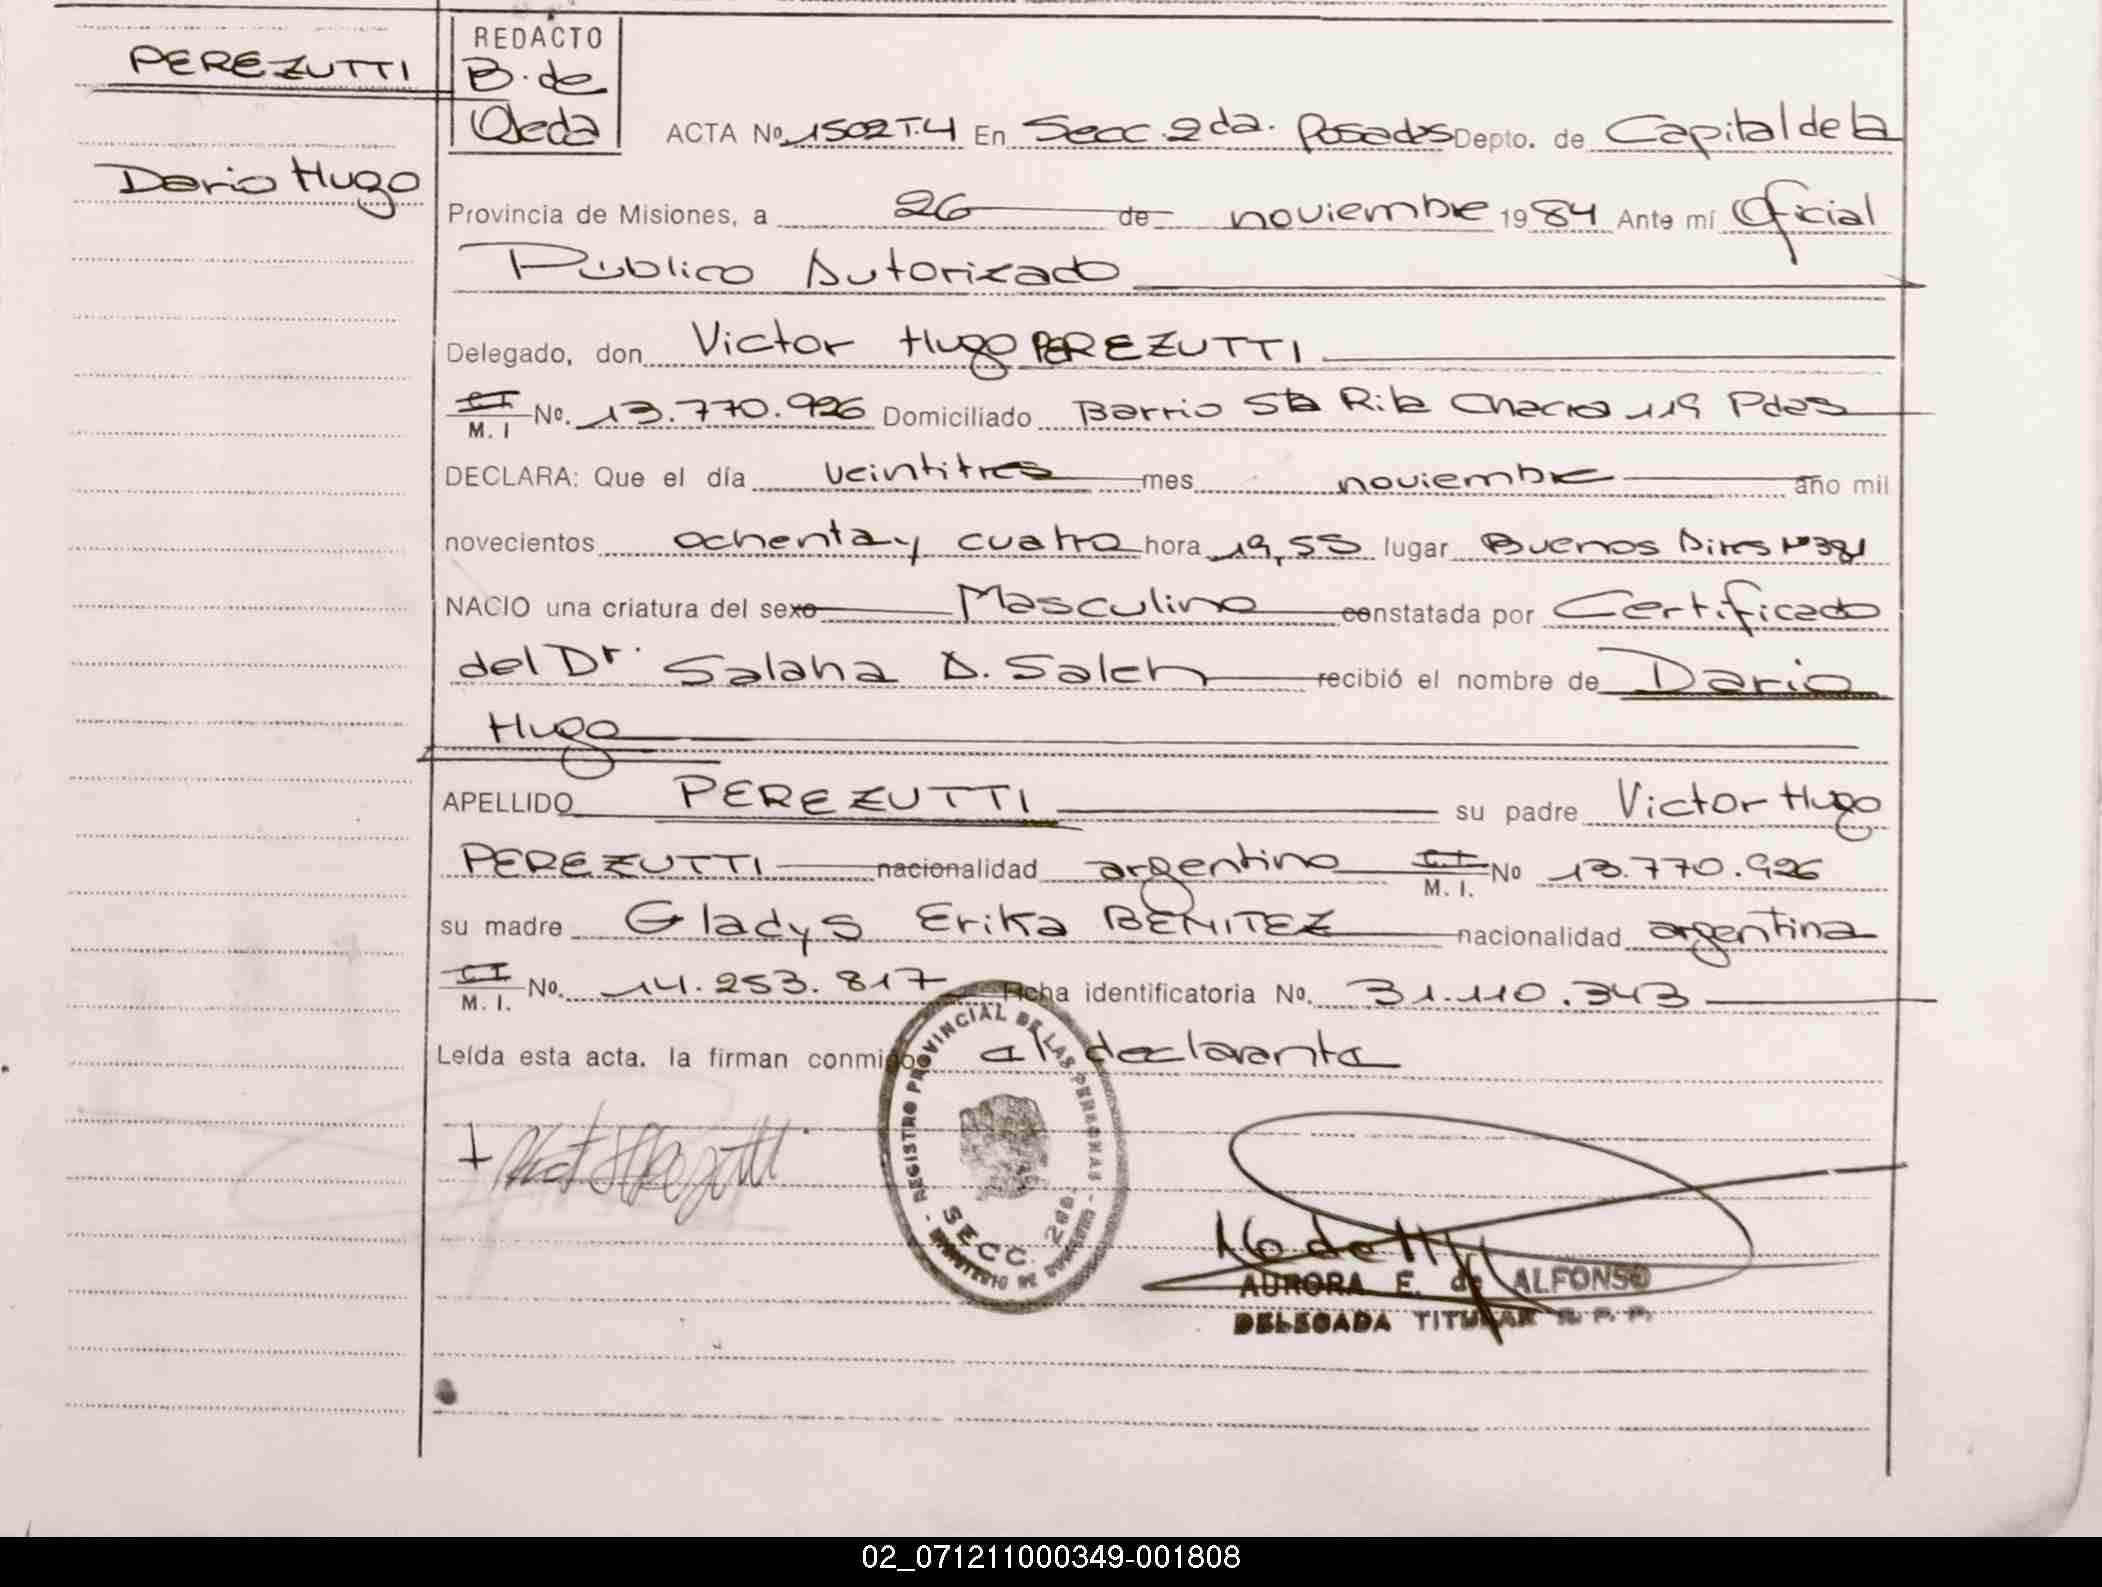 PEREZUTTI
Dario Hugo
REDACTO
B. de
Ojeda
ACTA Nº 1502 T.4 En Secc. 2da. Posadas Depto. de Capital de la
Provincia de Misiones, a 26 de noviembre 1984 Ante mí Oficial
Público Autorizado
Delegado, don Victor Hugo PEREZUTTI
C I
M. I Nº. 13.770.926 Domiciliado Barrio Sta Rita Chacra 119 Pdas
DECLARA: Que el día veintitres mes noviembre año mil
novecientos ochenta y cuatro hora 19,55 lugar Buenos Aires Nº 381
NACIO una criatura del sexo Masculino constatada por Certificado
del Dr. Salaha A. Saleh recibió el nombre de Dario
Hugo
APELLIDO PEREZUTTI su padre Victor Hugo
PEREZUTTI nacionalidad argentino C.I.
M. I. Nº 13.770.926
su madre Gladys Erika BENITEZ nacionalidad argentina
C I
M. I. Nº. 14.253.817 Ficha identificatoria Nº. 31.110.343
Leída esta acta, la firman conmigo el declarante
REGISTRO PROVINCIAL DE LAS PERSONAS - MINISTERIO DE GOBIERNO -
SECC. 2da.
AURORA E. de ALFONSO
DELEGADA TITULAR R. P. P.
02_071211000349-001808